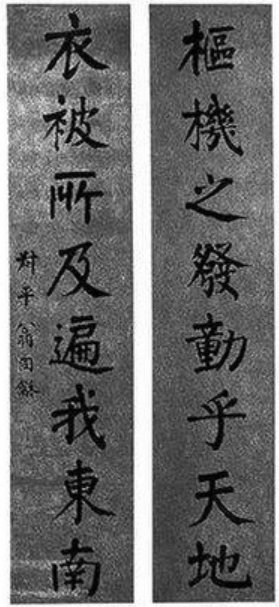 樞機之發動乎天地
衣被所及遍我東南
尌平翁同龢